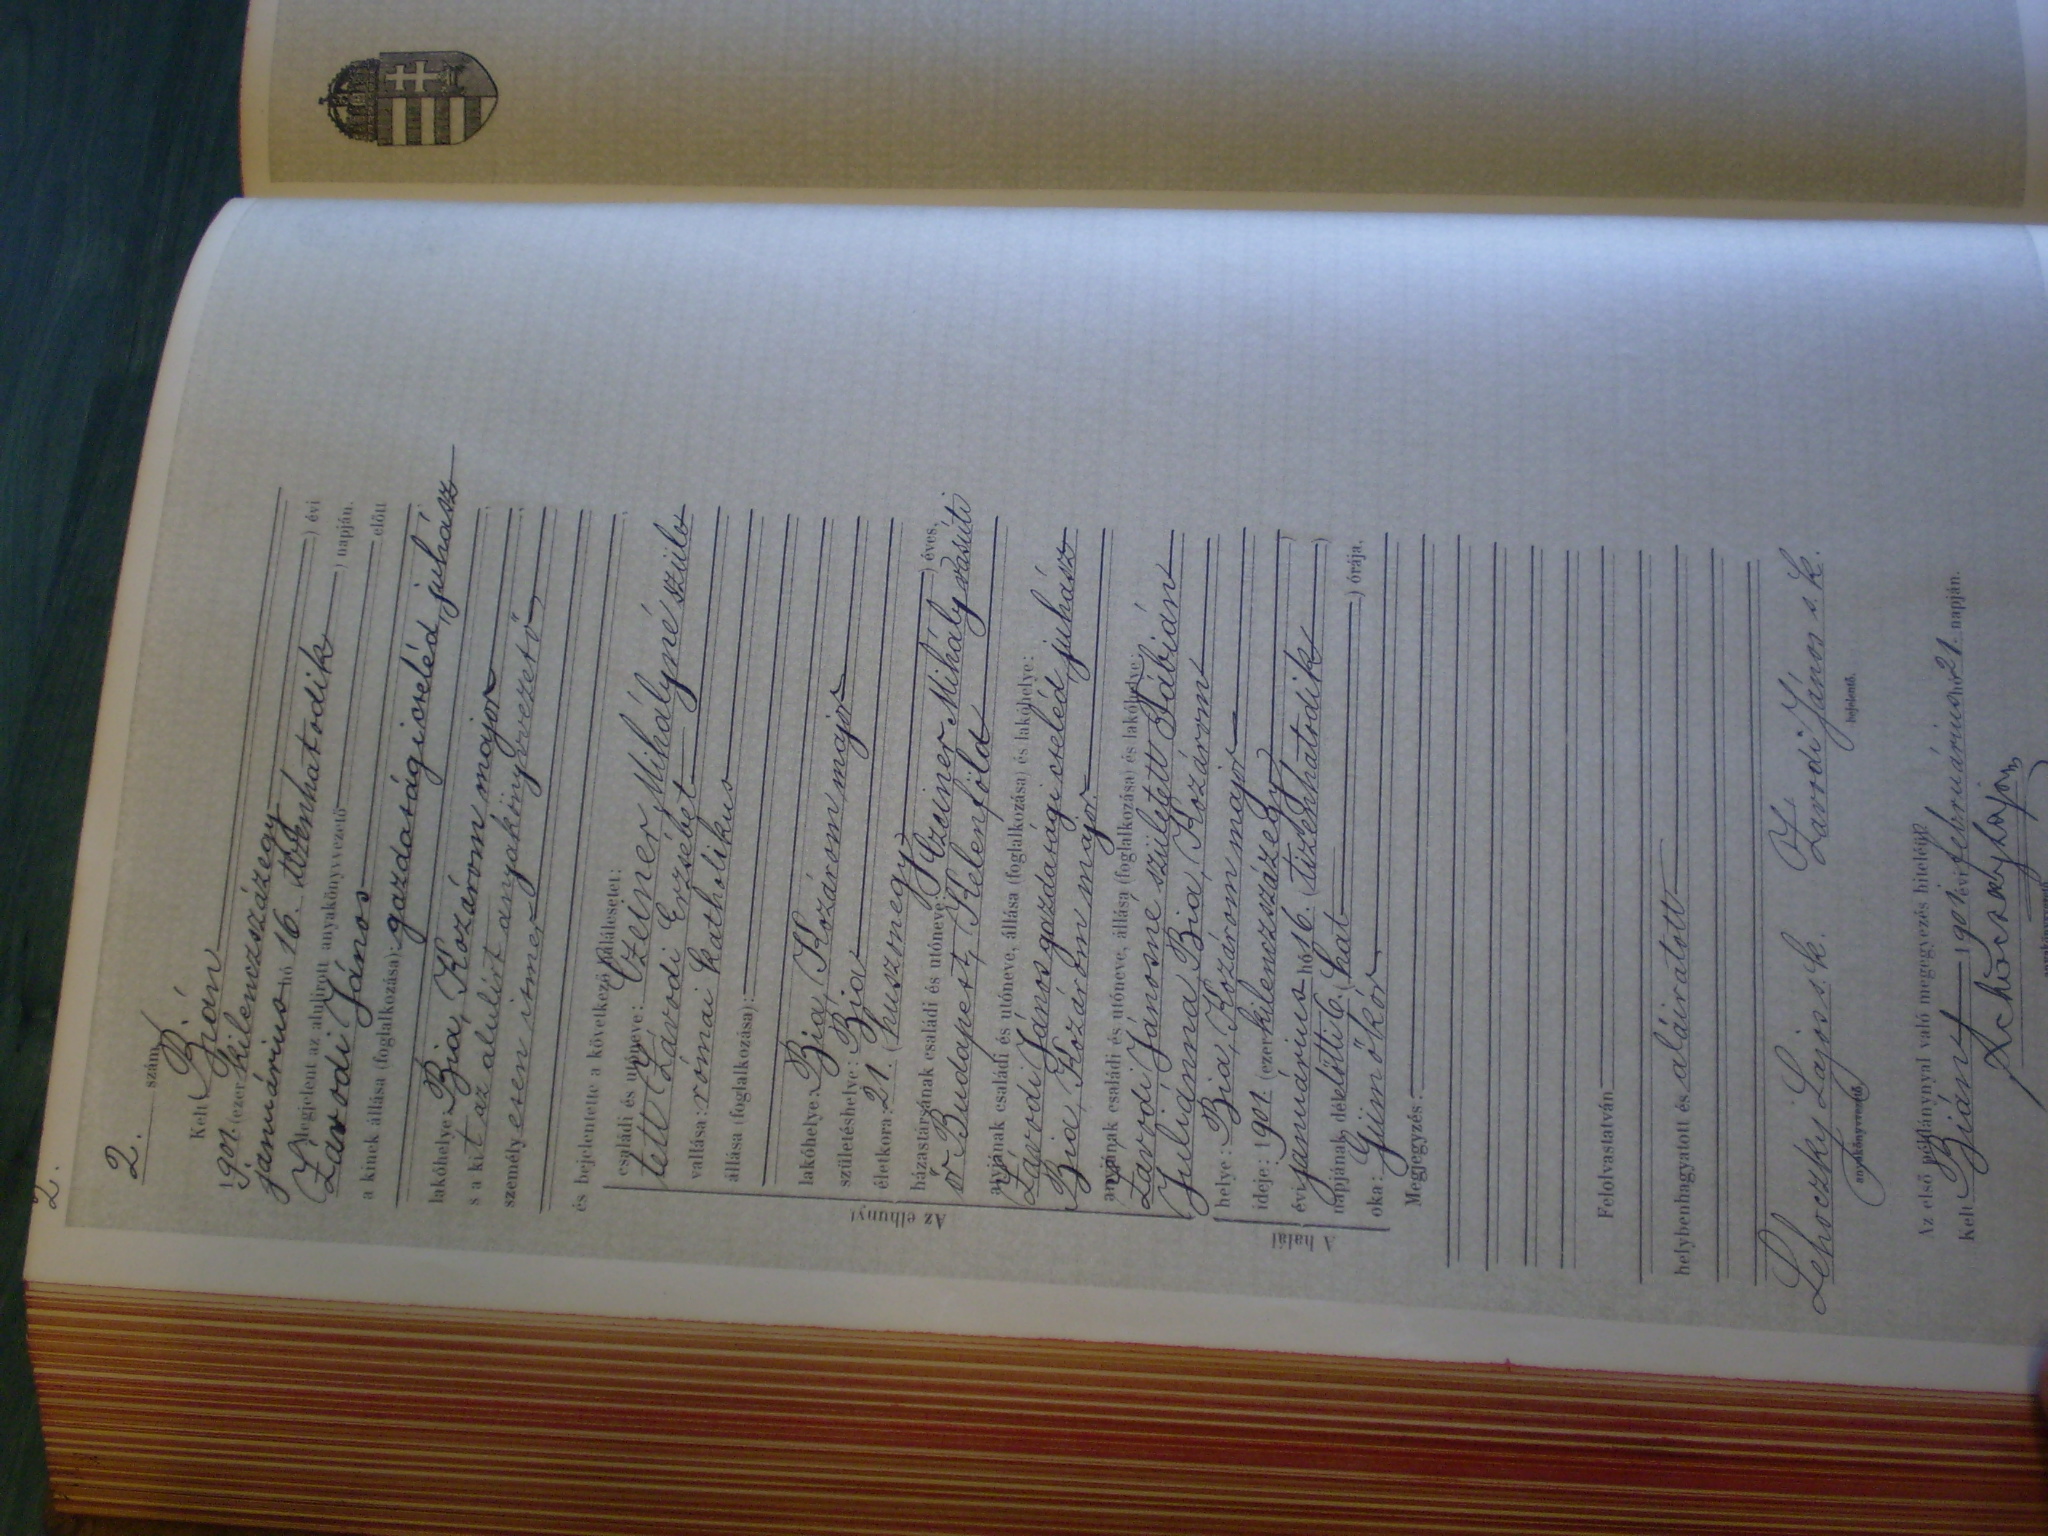 2.
2. szám
Kelt Bián
1901. (ezer kilenczszázegy) évi
januárius hó 16. tizenhatodik) napján.
Megjelent az alulirott anyakönyvvezető előtt
Závodi János
a kinek állása (foglalkozása): gazdasági cseléd, juhász
lakóhelye: Bia, Kozárom major
s a kit az alulirt anyakönyvvezető
személyesen ismer
és bejelentette a következő halálesetet:
Az elhunyt
családi és utóneve: Czeiner Mihályné szüle
tett Závodi Erzsébet
vallása: római katholikus
állása (foglalkozása):
lakóhelye: Bia, Kozárom major
születéshelye: Bia
életkora: 21. (huszonegy) éves.
házastársának családi és utóneve: Czeiner Mihály vasúti
őr Budapest, Kelenföld
atyjának családi és utóneve, állása (foglalkozása) és lakóhelye:
Závodi János gazdasági cseléd juhász
Bia, Kozárom major
anyjának családi és utóneve, állása (foglalkozása) és lakóhelye:
Závodi Jánosné született Bábián
Juliánna, Bia, Kozárom
A halál
helye: Bia, Kozárom major
ideje: 1901. (ezer kilenczszázegy)
évi januárius hó 16. (tizenhatodik)
napjának délelőtti 6. (hat) órája.
oka: Gümőkór
Megjegyzés:
Felolvastatván
helybenhagyatott és aláiratott
Lehoczky Lajos s. k. Závodi János s. k.
anyakönyvvezető bejelentő.
Az első példánynyal való megegyezés hiteléül
Kelt Bián 1901. évi februárius hó 21. napján.
Lehoczky Lajos